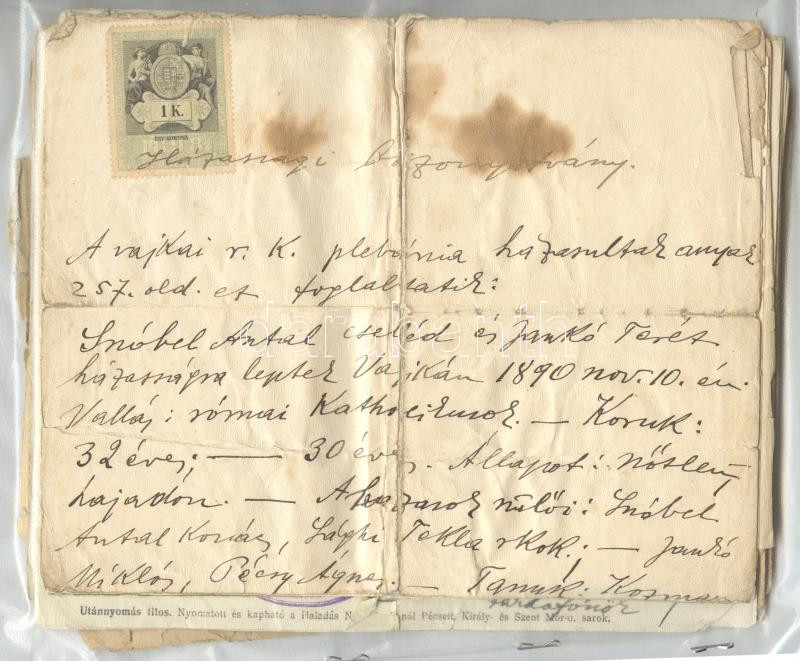 1 K.
EGY KORONA
Házassági bizonyítvány.
A vajkai r. k. plebánia házasultak anyak
257. old. et foglaltatik:
Snóbel Antal cseléd és Jankó Terét
házasságra léptek Vajkán 1890 nov. 10. én.
Vallás: római Katholikusok. — Koruk:
32 éves; — 30 éves. Állapot: nőtlen,
hajadon. — A házasok szülői: Snóbel
Antal Kovács, Sághi Tekla rkok; — Jankó
Miklós, Pécsy Ágnes. — Tanúk: Kozman
Utánnyomás tilos. Nyomatott és kapható a Haladás N nál Pécsett, Király- és Szent Mór-u. sarok.
darabanth